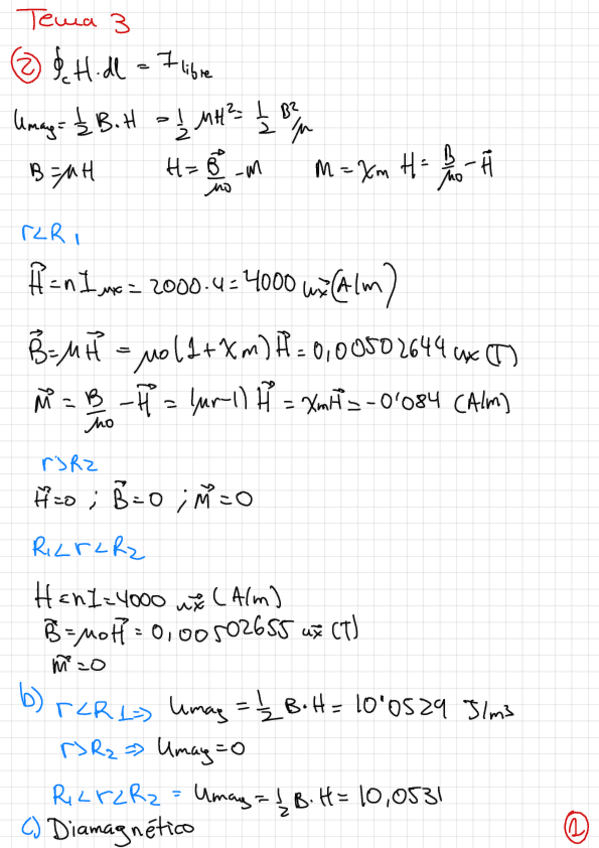 Tema 3
② ∮c H·dl = Ilibre
Umag = 1/2 B·H = 1/2 μH² = 1/2 B²/μ
B = μH    H = B⃗/μ0 - M    M = χm H = B/μ0 - H⃗
r<R1
H⃗ = nI ux = 2000·4 = 4000 ux⃗ (A/m)
B⃗ = μH⃗ = μ0(1+χm)H⃗ = 0,00502644 ux (T)
M⃗ = B/μ0 - H⃗ = (μr-1) H⃗ = χmH⃗ = -0'084 (A/m)
r>R2
H⃗=0 ; B⃗=0 ; M⃗=0
R1<r<R2
H=nI=4000 ux⃗ (A/m)
B⃗=μ0H⃗=0,00502655 ux⃗ (T)
M⃗=0
b) r<R1⇒ Umag = 1/2 B·H = 10'0529 J/m3
r>R2 ⇒ Umag=0
R1<r<R2 = Umag = 1/2 B·H = 10,0531
c) Diamagnético
①